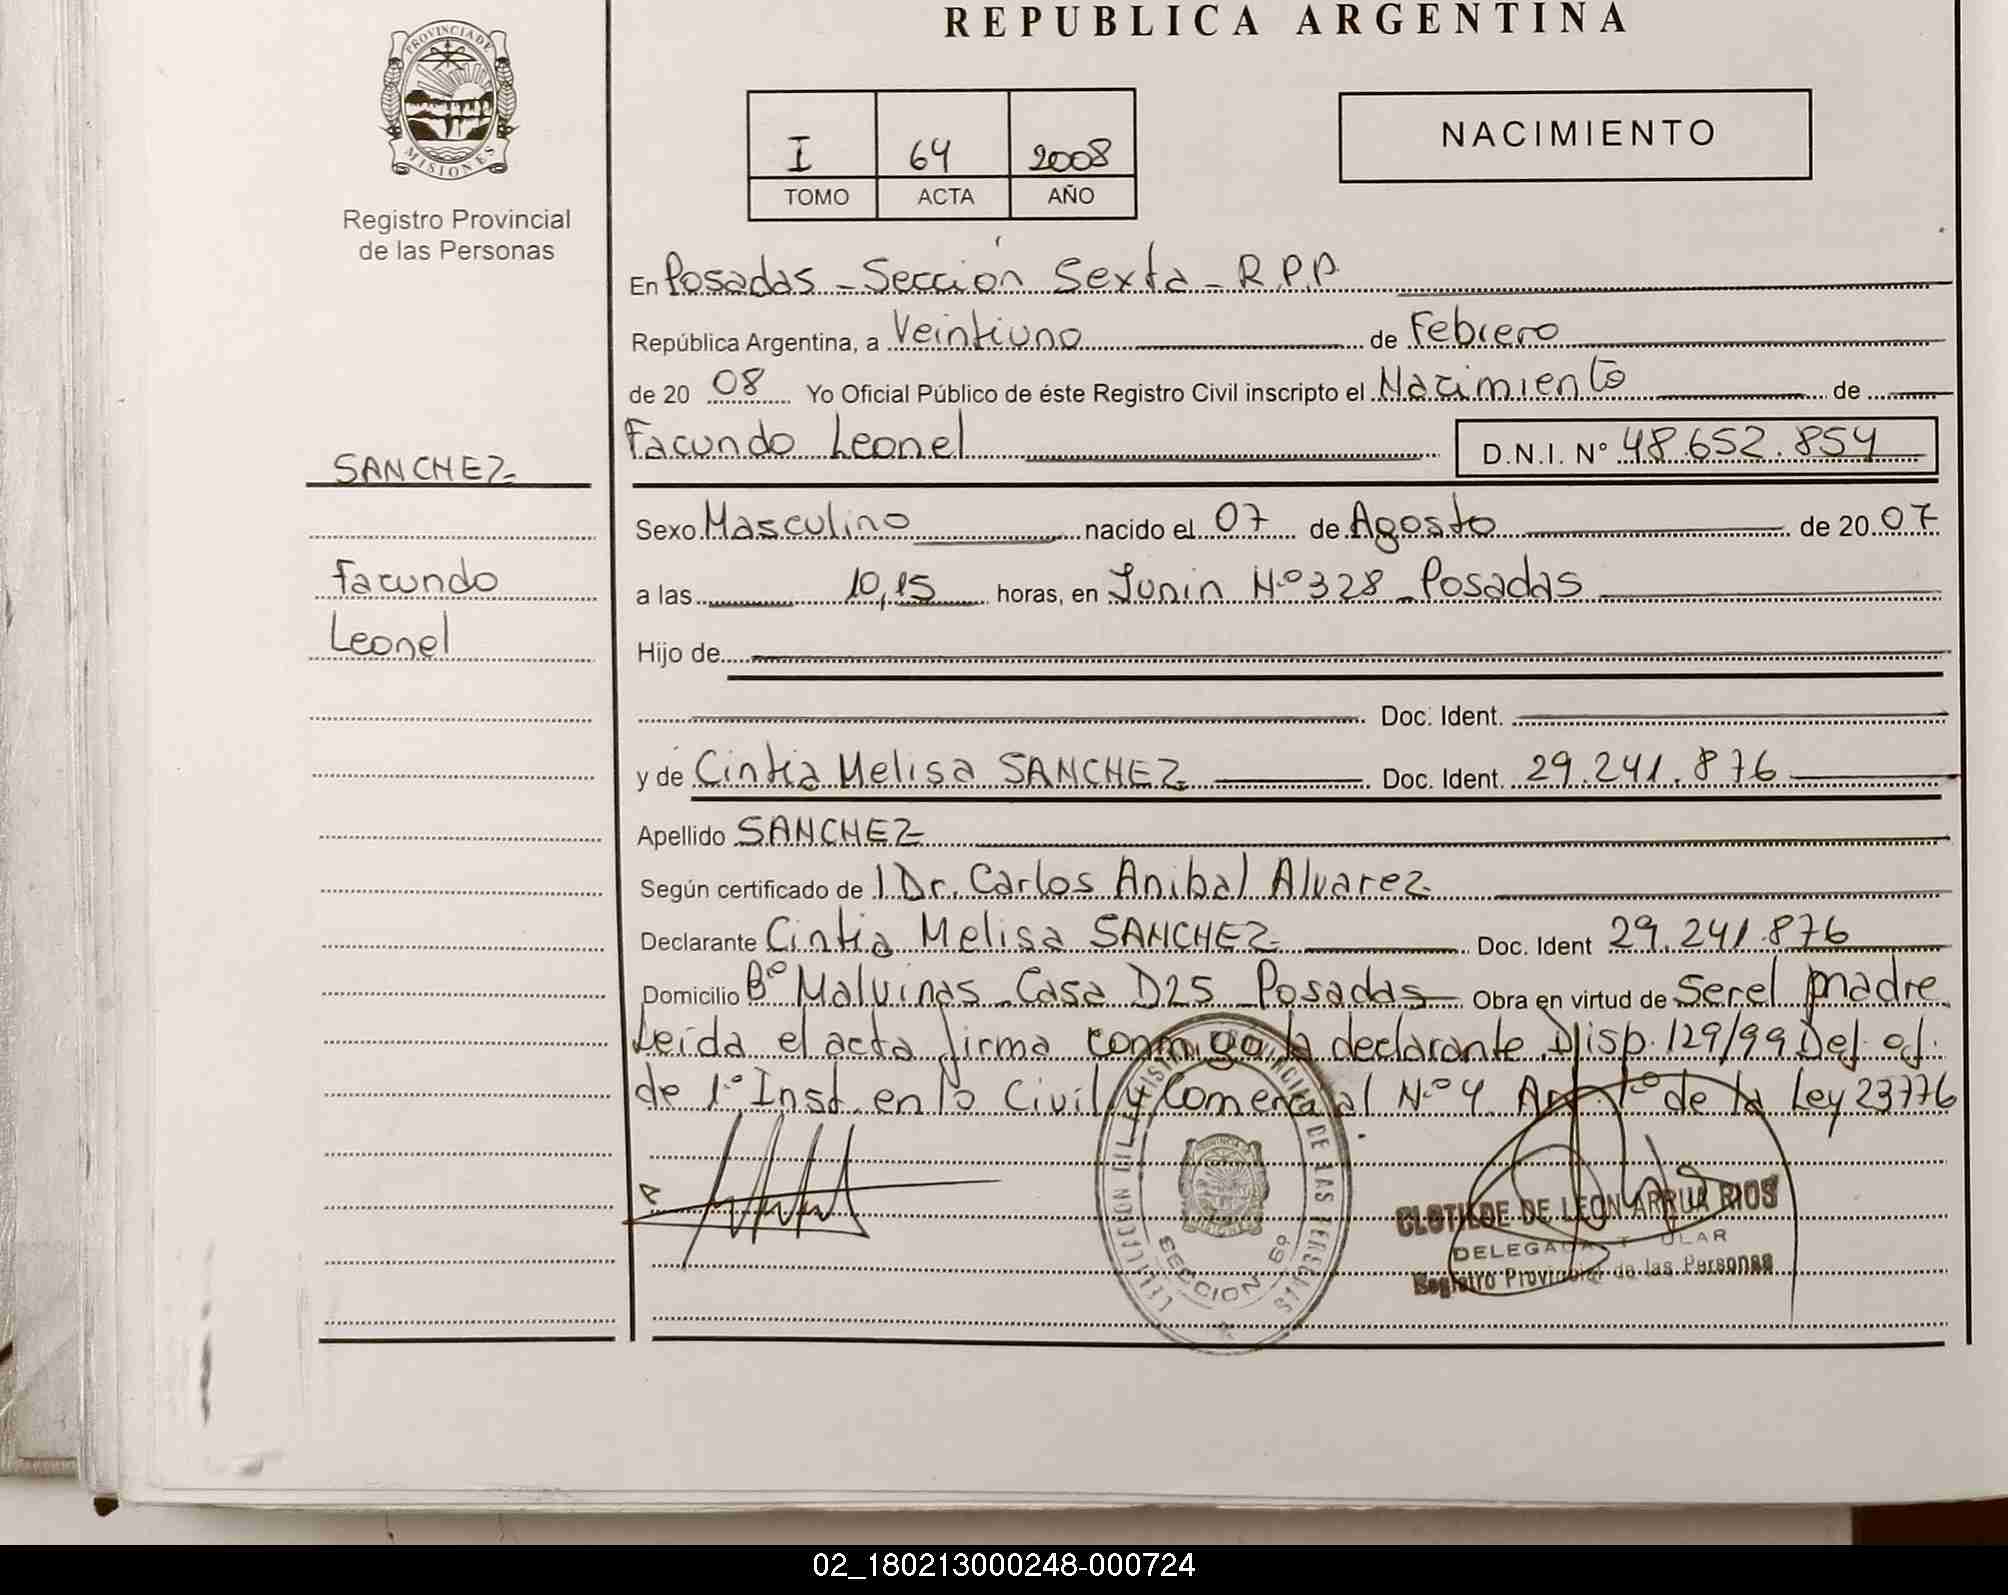 REPUBLICA ARGENTINA
PROVINCIA DE
MISIONES
Registro Provincial
de las Personas
I 64 2008
TOMO ACTA AÑO
NACIMIENTO
En Posadas - Sección Sexta - R.P.P.
República Argentina, a Veintiuno de Febrero
de 20 08 Yo Oficial Público de éste Registro Civil inscripto el Nacimiento de
Facundo Leonel D.N.I. N° 48.652.854
SANCHEZ
Facundo
Leonel
Sexo Masculino nacido el 07 de Agosto de 20 07
a las 10,15 horas, en Junin N.º 328 - Posadas
Hijo de
Doc. Ident.
y de Cintia Melisa SANCHEZ Doc. Ident. 29.241.876
Apellido SANCHEZ
Según certificado de l Dr. Carlos Anibal Alvarez
Declarante Cintia Melisa SANCHEZ Doc. Ident 29.241.876
Domicilio Bº Malvinas Casa D25 Posadas Obra en virtud de Ser el madre
Leída el acta firma conmigo la declarante Disp. 129/99 Def. of.
de 1º Inst. en lo Civil y Comercial N.º 4 Art 1º de la Ley 23776
SECCION 6º
CLOTILDE DE LEON ARRUA RIOS
DELEGADA TITULAR
Registro Provincial de las Personas
02_180213000248-000724